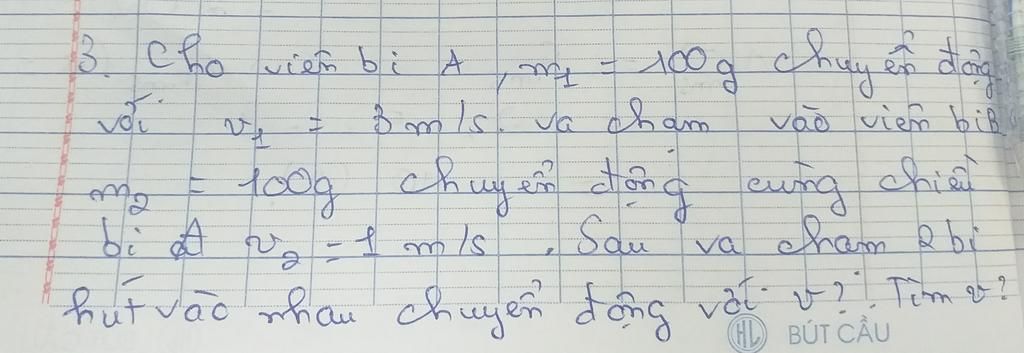 3. Cho viên bi A, m₁ = 100g chuyển động
với v₁ = 3 m/s. va chạm vào viên bi B
m₂ = 100g chuyển động cùng chiều
bi A v₂ = 1 m/s. Sau va chạm 2 bi
hút vào nhau chuyển động với v? Tìm v?
HL BÚT CẦU